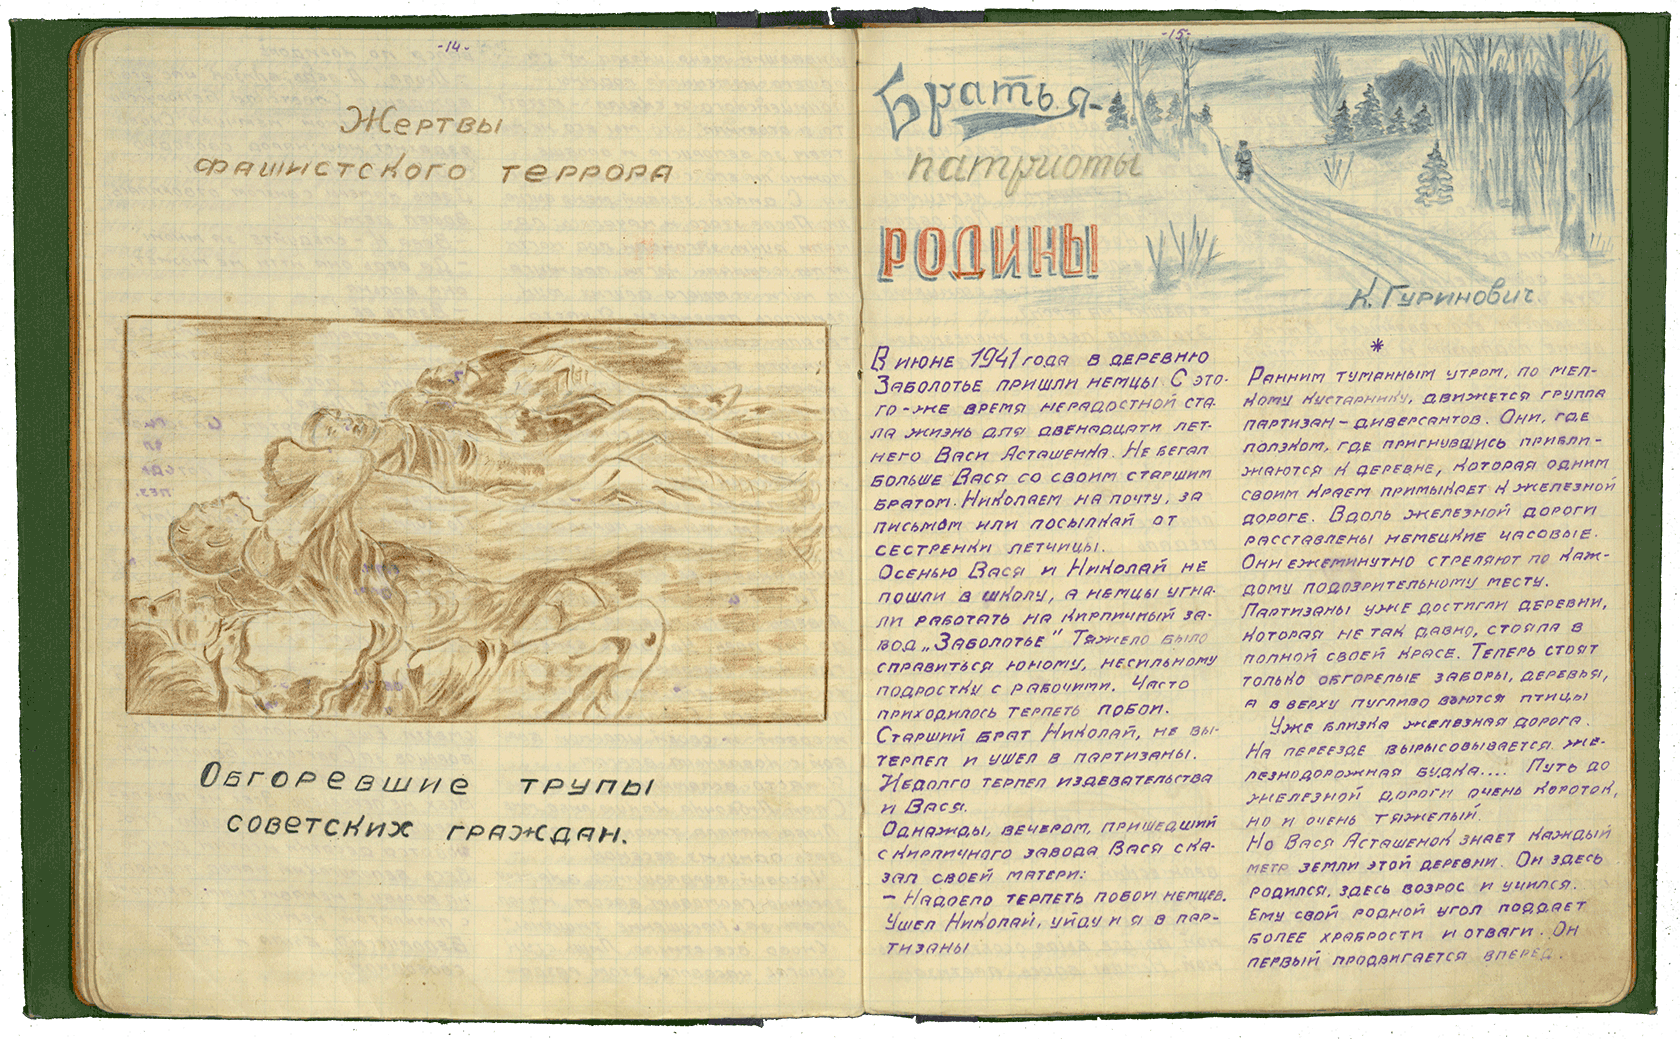 -14-
Жертвы
фашистского террора
Обгоревшие трупы
советских граждан.
-15-
Братья-
патриоты
РОДИНЫ
К. Гуринович
В июне 1941 года в деревню
Заболотье пришли немцы. С это-
го-же время нерадостной ста-
ла жизнь для двенадцати лет-
него Васи Асташенка. Не бегал
больше Вася со своим старшим
братом. Николаем на почту, за
письмом или посылкай от
сестренки летчицы.
Осенью Вася и Николай не
пошли в школу, а немцы угна-
ли работать на кирпичный за-
вод „Заболотье" Тяжело было
справиться юному, несильному
подростку с рабочими. Часто
приходилось терпеть побои.
Старший брат Николай, не вы-
терпел и ушел в партизаны.
Недолго терпел издевательства
и Вася.
Однажды, вечером, пришедший
с кирпичного завода Вася ска-
зал своей матери:
– Надоело терпеть побои немцев.
Ушел Николай, уйду и я в пар-
тизаны
*
Ранним туманным утром, по мел-
кому кустарнику, движется группа
партизан-диверсантов. Они, где
ползком, где пригнувшись прибли-
жаются к деревне, которая одним
своим краем примыкает к железной
дороге. Вдоль железной дороги
расставлены немецкие часовые.
Они ежеминутно стреляют по каж-
дому подозрительному месту.
Партизаны уже достигли деревни,
которая не так давно, стояла в
полной своей красе. Теперь стоят
только обгорелые заборы, деревья,
а в верху пугливо вьются птицы
Уже близка железная дорога.
На переезде вырысовывается же-
лезнодорожная будка.... Путь до
железной дороги очень короток,
но и очень тяжелый.
Но Вася Асташенок знает каждый
метр земли этой деревни. Он здесь
родился, здесь возрос и учился.
Ему свой родной угол поддает
более храбрости и отваги. Он
первый продвигается вперед.